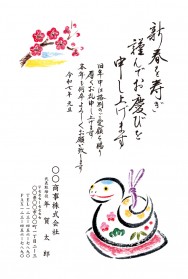 新春を寿ぎ
謹んでお慶びを
申し上げます
旧年中は格別のご愛顧を賜り
厚くお礼申し上げます
本年も何卒よろしくお願い
申し上げます
令和七年 元旦
〇〇商事株式会社
代表取締役 年賀太郎